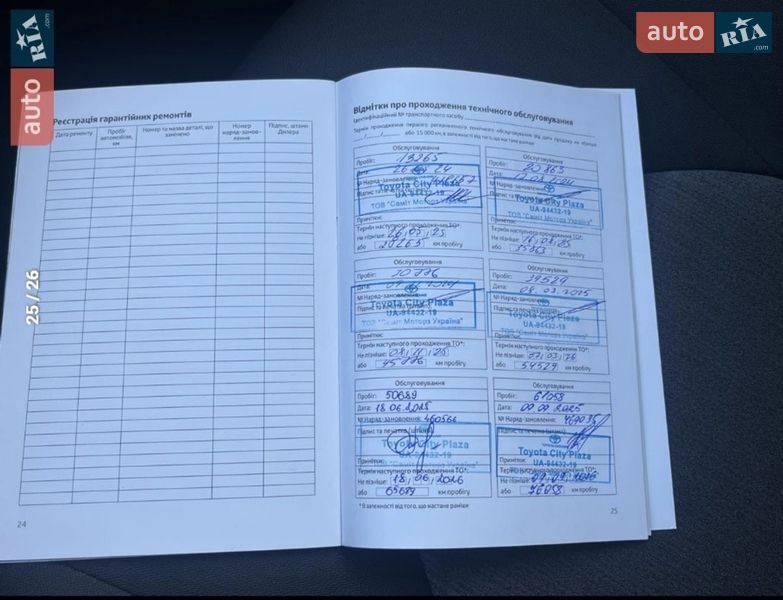 auto RIA .com
auto RIA .com
25 / 26
Реєстрація гарантійних ремонтів
Дата ремонту
Пробіг автомобіля, км
Номер та назва деталі, що замінено
Номер наряд-замовлення
Підпис, штамп Дилера
24
Відмітки про проходження технічного обслуговування
Ідентифікаційний № транспортного засобу
Термін проходження першого регламентного технічного обслуговування від дати продажу не пізніше
або 15 000 км, в залежності від того, що настане раніше
Обслуговування
Пробіг: 13265
Дата: 26 24
№ Наряд-замовлення:
Toyota City Plaza
UA-94432-19
ТОВ "Саміт Моторз
Примітки:
Термін наступного проходження ТО*:
Не пізніше: 26, 03, 25
або 28265 км пробігу
Обслуговування
Пробіг: 20363
Дата:
№ Наряд-замовлення:
Toyota City Plaza
UA-94432-19
ТОВ "Саміт Моторз Україна"
Примітки:
Термін наступного проходження ТО*:
Не пізніше:
або 35363 км пробігу
Обслуговування
Пробіг: 30776
Дата:
№ Наряд-замовлення:
Toyota City Plaza
UA-94432-19
ТОВ "Саміт Моторз Україна"
Примітки:
Термін наступного проходження ТО*:
Не пізніше:
або 45776 км пробігу
Обслуговування
Пробіг: 39529
Дата: 08.03.2025
№ Наряд-замовлення:
Toyota City Plaza
UA-94432-19
Примітки:
Термін наступного проходження ТО*:
Не пізніше:
або 54529 км пробігу
Обслуговування
Пробіг: 50689
Дата: 18.06.2025
№ Наряд-замовлення: 460566
Підпис та печатка (штамп)
Toyota City Plaza
UA-94432-19
Примітки:
Термін наступного проходження ТО*:
Не пізніше: 18, 06, 2026
або 65689 км пробігу
Обслуговування
Пробіг: 61058
Дата: 09.09.2025
№ Наряд-замовлення:
Toyota City Plaza
UA-94432-19
Примітки:
Не пізніше: 09, 09, 2026
або 76058 км пробігу
* В залежності від того, що настане раніше
25